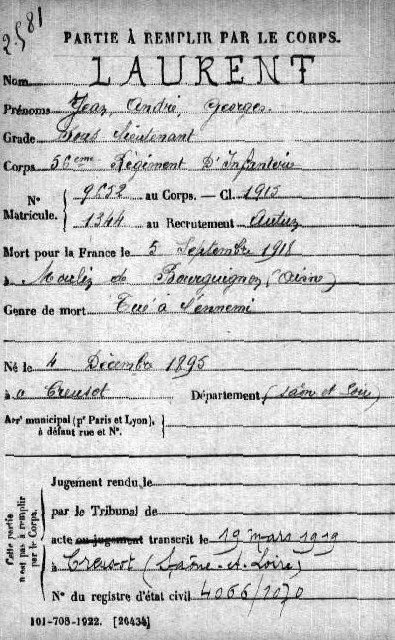 2.581
PARTIE À REMPLIR PAR LE CORPS.
Nom LAURENT
Prénoms Jean, André, Georges.
Grade Sous Lieutenant
Corps 56eme Régiment D'Infanterie
N° Matricule. { 9652 au Corps. — Cl. 1915
1344 au Recrutement Autun
Mort pour la France le 5 Septembre 1918
à Moulin de Bourguignon (Aisne)
Genre de mort Tué à l'ennemi
Né le 4 Décembre 1895
à Creusot Département (Saône et Loire)
Arr' municipal (p' Paris et Lyon), à défaut rue et N°. }
Cette partie n'est pas à remplir par le Corps.
Jugement rendu le
par le Tribunal de
acte ou jugement transcrit le 19 mars 1919
à Creusot (Saône-et-Loire)
N° du registre d'état civil 4066/1070
101-708-1922. [26434]